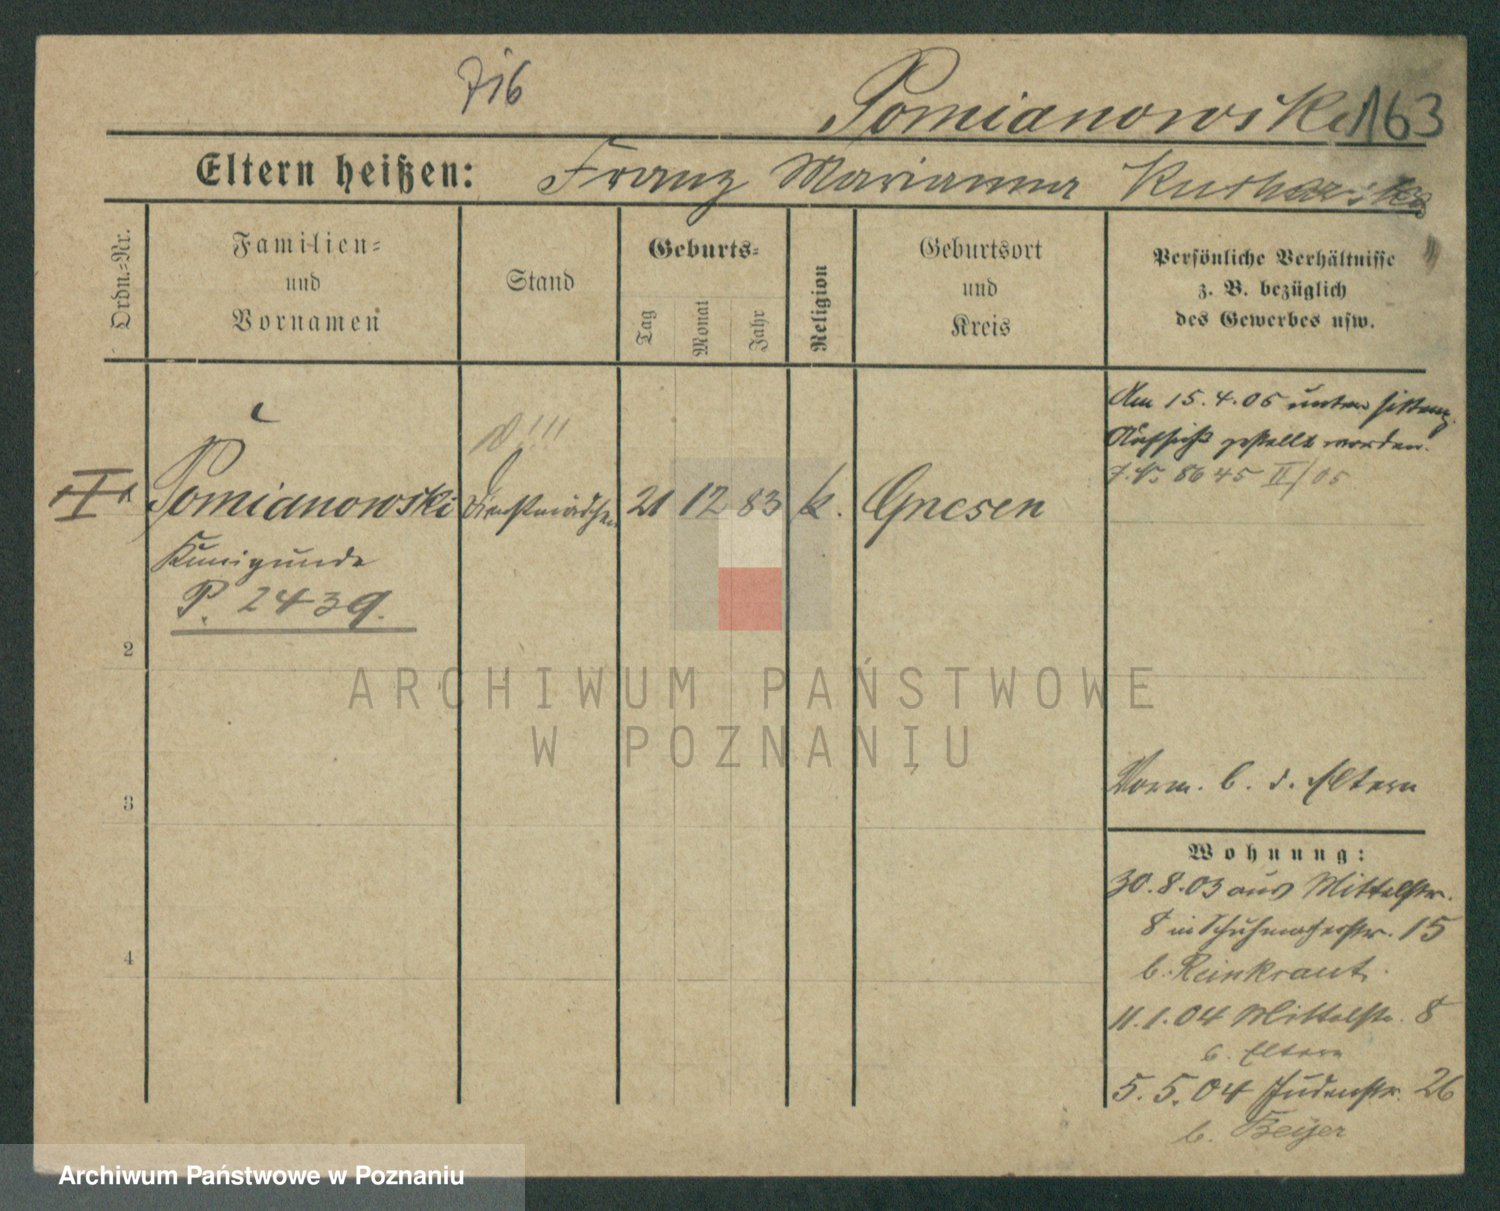 716
Pomianowski 163
Eltern heißen: Franz Marianna
Ordn.-Nr.
Familien-
und
Vornamen
Stand
Geburts-
Tag
Monat
Jahr
Religion
Geburtsort
und
Kreis
Persönliche Verhältnisse
z. B. bezüglich
des Gewerbes usw.
Am 15.4.05 unter sitten
Aufsicht gestellt worden.
J. N. 8645 II/05
I Pomianowski Dienstmädchen 21 12 83 k. Gnesen
Kunigunde
P. 2439.
2
3
4
ARCHIWUM PAŃSTWOWE
W POZNANIU
Vorm. b. d. Eltern
Wohnung:
30.8.03 aus Mittelstr.
8 in Schuhmacherstr. 15
b. Reinkraut.
11.1.04 Mittelstr. 8
b. Eltern
5.5.04 Judenstr. 26
b. Beyer
Archiwum Państwowe w Poznaniu